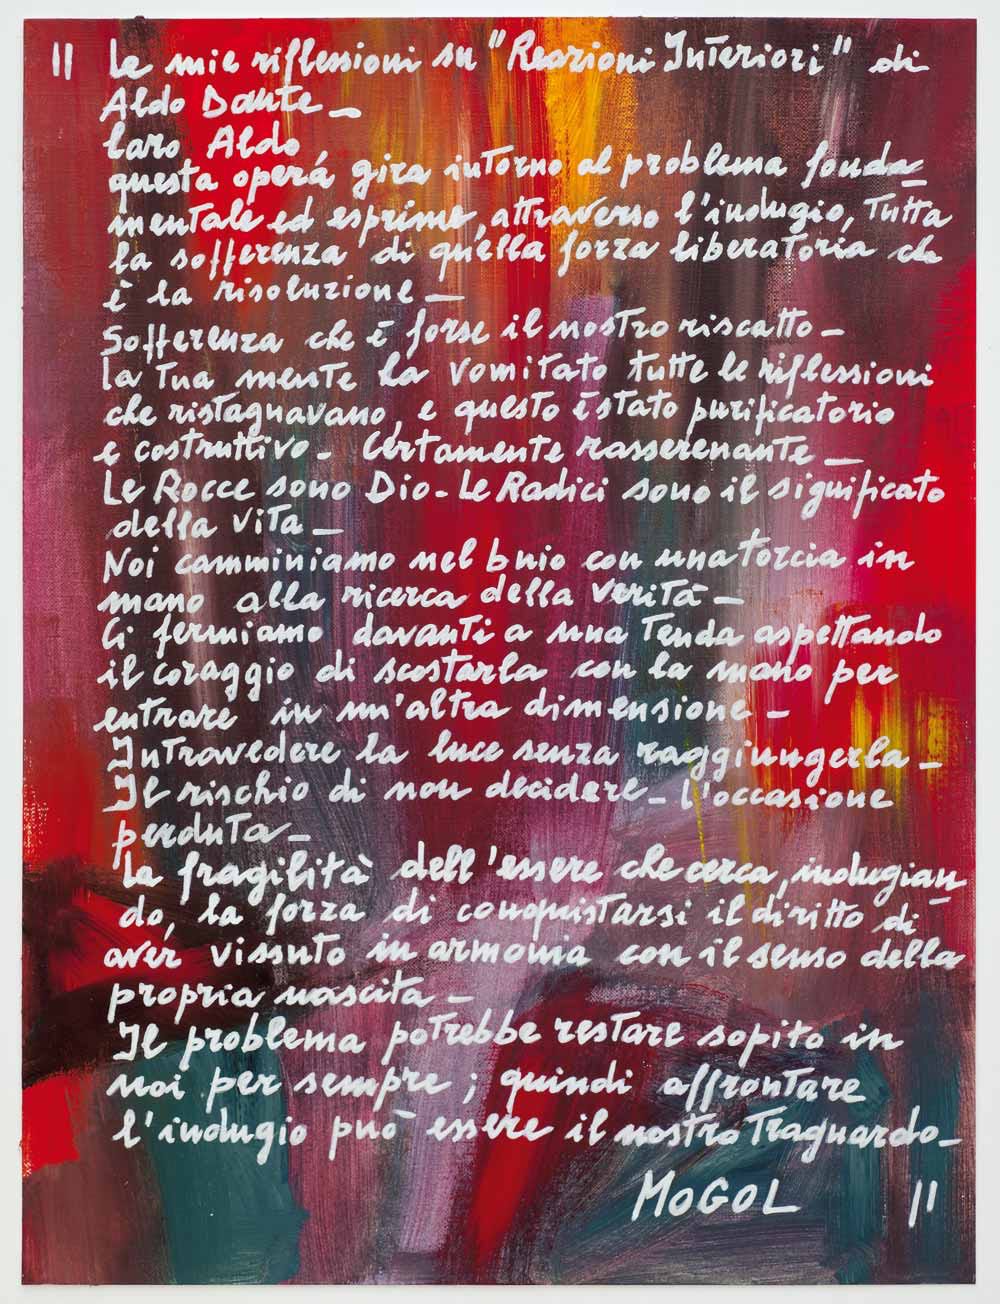 " Le mie riflessioni su "Reazioni Interiori" di
Aldo Dante —
Caro Aldo
questa opera gira intorno al problema fonda-
mentale ed esprime, attraverso l'indugio, tutta
la sofferenza di quella forza liberatoria che
è la risoluzione —
Sofferenza che è forse il nostro riscatto —
la tua mente ha vomitato tutte le riflessioni
che ristagnavano, e questo è stato purificatorio
e costruttivo - Certamente rasserenante —
Le Rocce sono Dio - Le Radici sono il significato
della vita —
Noi camminiamo nel buio con una torcia in
mano alla ricerca della verità —
Ci fermiamo davanti a una tenda aspettando
il coraggio di scostarla con la mano per
entrare in un'altra dimensione —
Intravedere la luce senza raggiungerla —
Il rischio di non decidere - l'occasione
perduta —
La fragilità dell'essere che cerca, indugian-
do, la forza di conquistarsi il diritto di
aver vissuto in armonia con il senso della
propria nascita —
Il problema potrebbe restare sopito in
noi per sempre ; quindi affrontare
l'indugio può essere il nostro traguardo —
MOGOL "